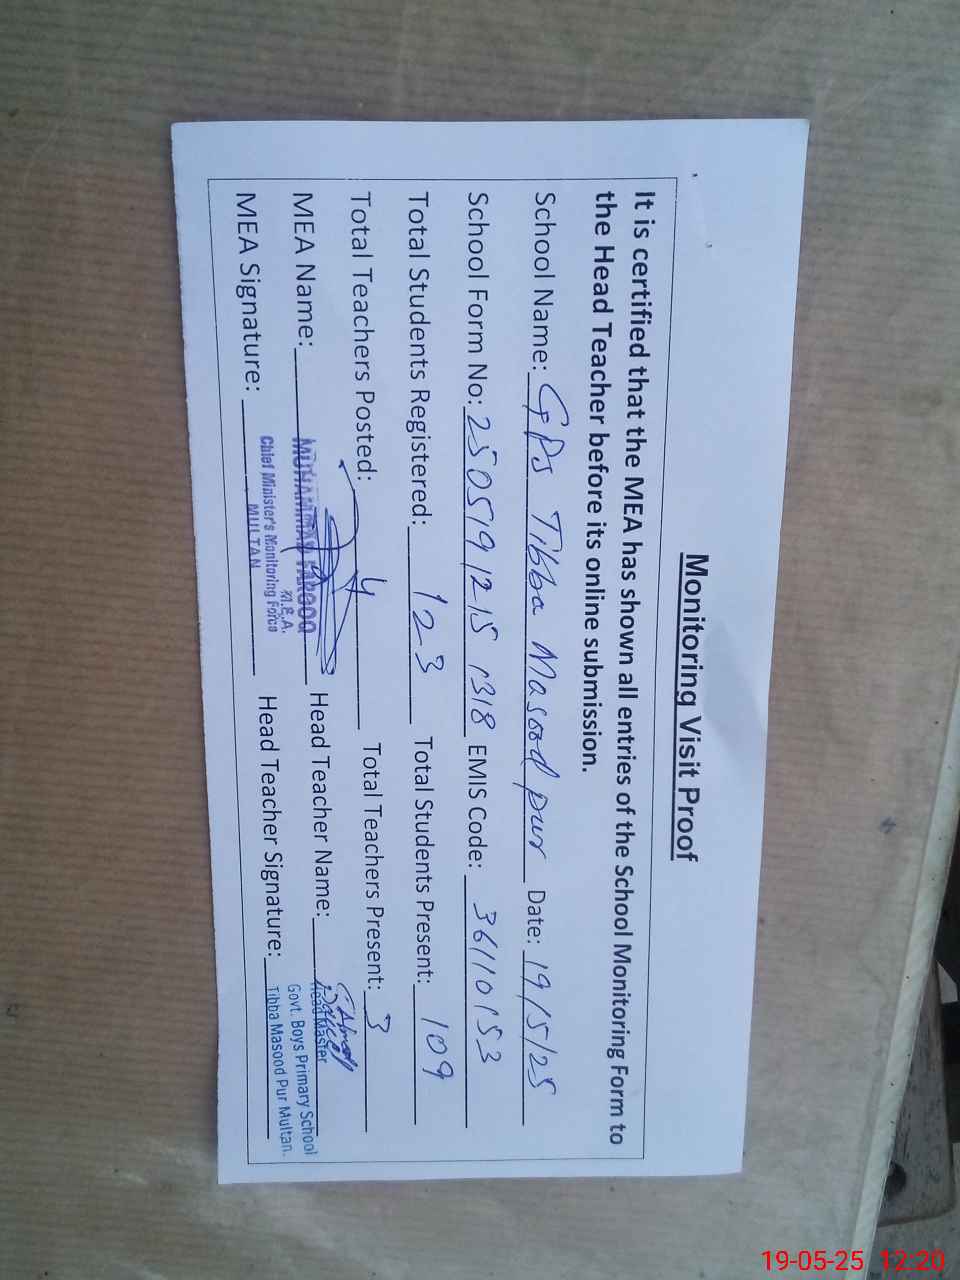 Monitoring Visit Proof
It is certified that the MEA has shown all entries of the School Monitoring Form to
the Head Teacher before its online submission.
School Name: GPS Tibba Masood pur Date: 19/5/25
School Form No: 250519 1215 1318 EMIS Code: 36110153
Total Students Registered: 123 Total Students Present: 109
Total Teachers Posted: 4 Total Teachers Present: 3
MEA Name: MUHAMMAD FAROOQ Head Teacher Name:
M.E.A.
Chief Minister's Monitoring Force
MULTAN
MEA Signature: Head Teacher Signature:
Head Master
Govt. Boys Primary School
Tibba Masood Pur Multan.
19-05-25 12:20